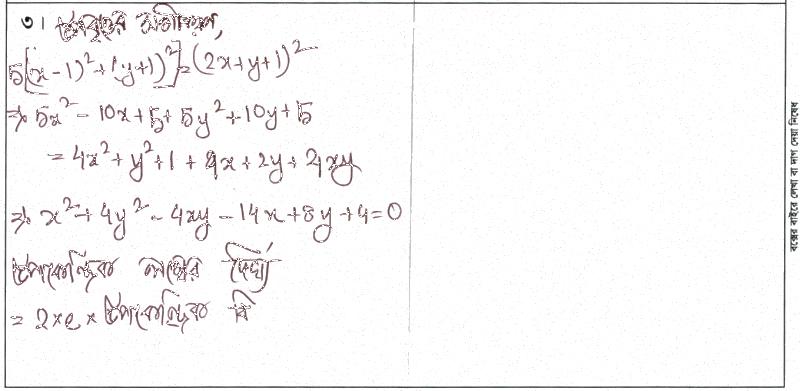 ৩। উপবৃত্তের সমীকরণ,
5[(x-1)²+(y+1)²]=(2x+y+1)²
⇒ 5x² - 10x+5+5y²+10y+5
= 4x²+y²+1+4x+2y+4xy
⇒ x²+4y²-4xy-14x+8y+4=0
উপকেন্দ্রিক লম্বের দৈর্ঘ্য
= 2×e× উপকেন্দ্রিক বি
বক্সের বাইরে লেখা বা দাগ দেয়া নিষেধ